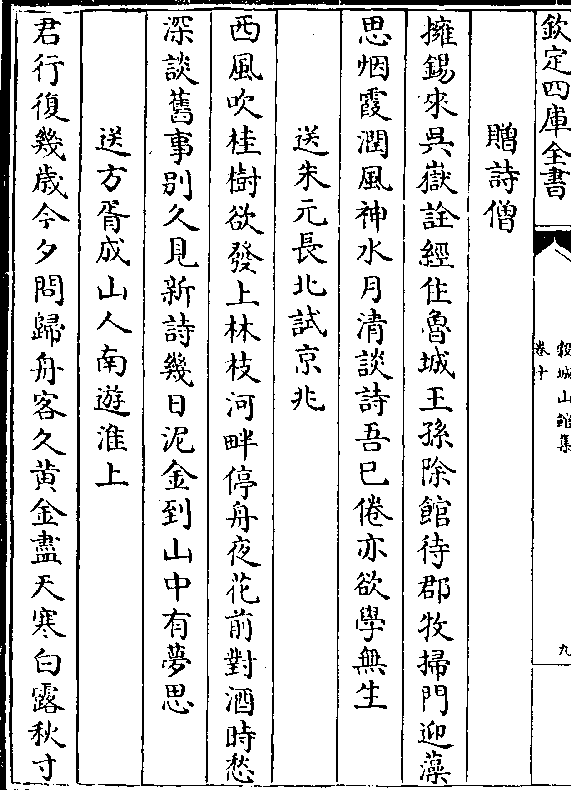 欽定四庫全書
穀城山館集
卷十
九
贈詩僧
擁錫來吳嶽詮經住魯城王孫除館待郡牧掃門迎藻
思烟霞潤風神水月清談詩吾已倦亦欲學無生
送朱元長北試京兆
西風吹桂樹欲發上林枝河畔停舟夜花前對酒時愁
深談舊事別久見新詩幾日泥金到山中有夢思
送方胥成山人南遊淮上
君行復幾歲今夕問歸舟客久黄金盡天寒白露秋寸